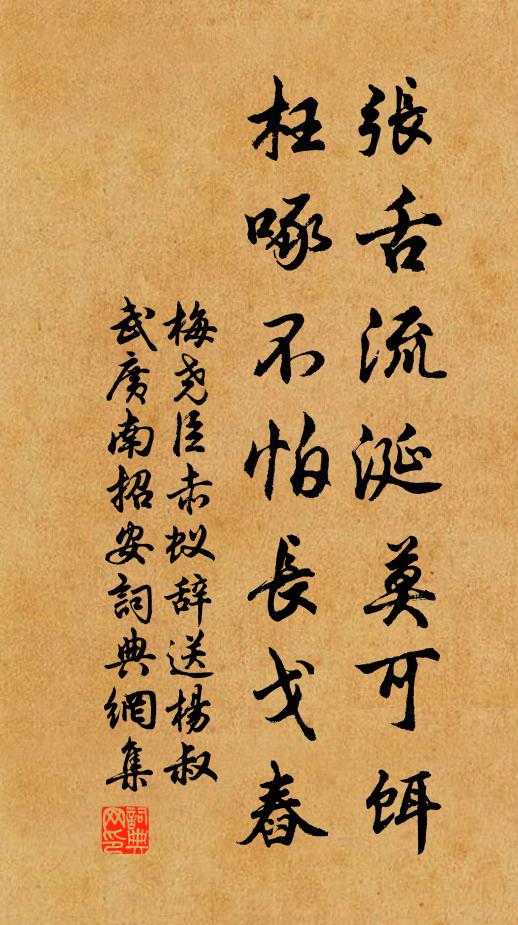 張舌流涎莫可餌
枉啄不怕長戈舂
梅尧臣赤蚁辞送楊叔
武廣南招安詞典網集
詞典
网印